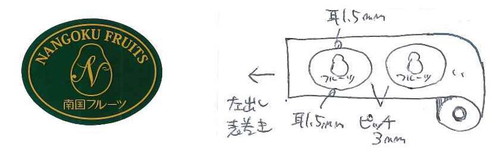 NANGOKU FRUITS
N
南国フルーツ
耳1.5mm
フルーツ
フルーツ
左出し
表巻き
耳1.5mm
ピッチ
3mm